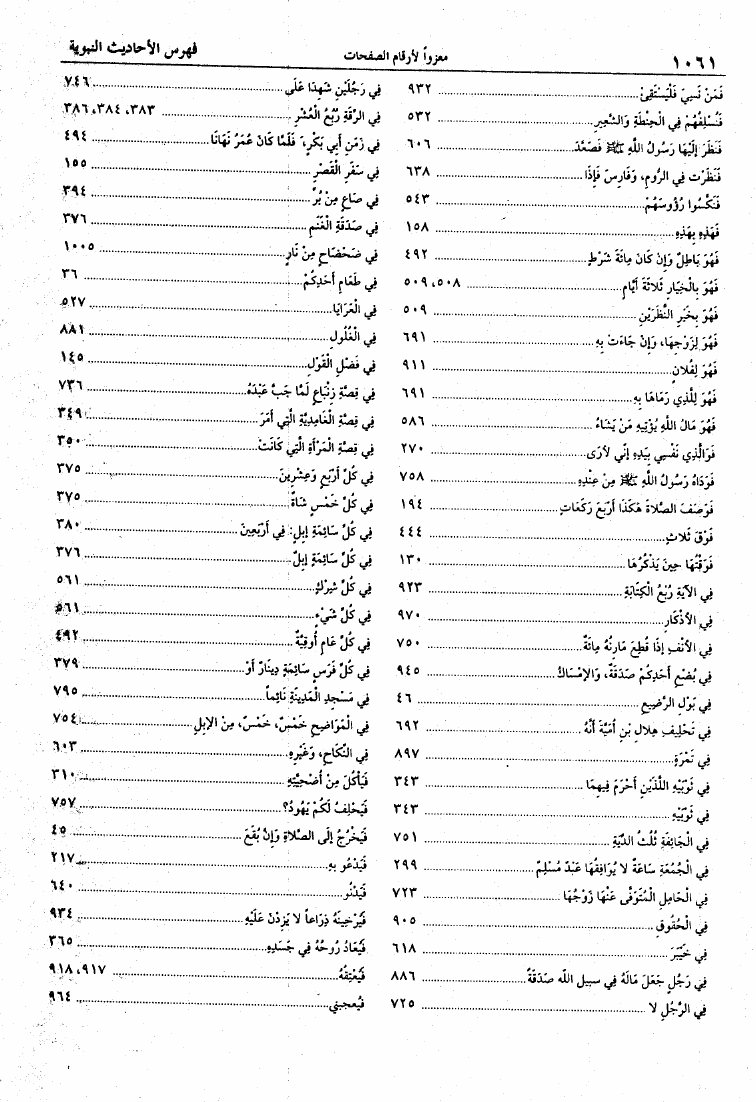 ١٠٦١ معزواً لأرقام الصفحات فهرس الأحاديث النبوية
فَمَنْ نَسِيَ فَلْيَسْتَقِئْ ٩٣٢
فَنُسْلِفُهُمْ فِي الْحِنْطَةِ وَالشَّعِيرِ ٥٣٢
فَنَظَرَ إِلَيْهَا رَسُولُ اللَّهِ ﷺ فَصَعَّدَ ٦٠٦
فَنَظَرْت فِي الرُّومِ، وَفَارِسَ فَإِذَا ٦٣٨
فَنَكَّسُوا رُؤُوسَهُمْ ٥٤٣
فَهَذِهِ بِهَذِهِ ١٥٨
فَهُوَ بَاطِلٌ وَإِنْ كَانَ مِائَةَ شَرْطٍ ٤٩٢
فَهُوَ بِالْخِيَارِ ثَلَاثَةَ أَيَّامٍ ٥٠٨، ٥٠٩
فَهُوَ بِخَيْرِ النَّظَرَيْنِ ٥٠٩
فَهُوَ لِزَوْجِهَا، وَإِنْ جَاءَتْ بِهِ ٦٩١
فَهُوَ لِفُلَانٍ ٩١١
فَهُوَ لِلَّذِي رَمَاهَا بِهِ ٦٩١
فَهُوَ مَالُ اللَّهِ يُؤْتِيهِ مَنْ يَشَاءُ ٥٨٦
فَوَالَّذِي نَفْسِي بِيَدِهِ إِنِّي لأَرَى ٢٧٠
فَوَدَاهُ رَسُولُ اللَّهِ ﷺ مِنْ عِنْدِهِ ٧٥٨
فَوَصَفَ الصَّلَاةَ هَكَذَا أَرْبَعَ رَكَعَاتٍ ١٩٤
فَوْقَ ثَلَاثٍ ٤٤٤
فَوَقْتُهَا حِينَ يَذْكُرُهَا ١٣٠
فِي الآيَةِ رُبُعُ الْكِتَابَةِ ٩٢٣
فِي الأَذْكَارِ ٩٧٠
فِي الأَنْفِ إِذَا قُطِعَ مَارِنُهُ مِائَةٌ ٧٥٠
فِي بُضْعِ أَحَدِكُمْ صَدَقَةٌ، وَالإِمْسَاكُ ٩٤٥
فِي بَوْلِ الرَّضِيعِ ٤٦
فِي تَحْلِيفِ هِلَالِ بْنِ أُمَيَّةَ أَنَّهُ ٦٩٢
فِي نَمِرَةِ ٨٩٧
فِي ثَوْبَيْهِ اللَّذَيْنِ أَحْرَمَ فِيهِمَا ٣٤٣
فِي ثَوْبَيْهِ ٣٤٣
فِي الْجَائِفَةِ ثُلُثُ الدِّيَةِ ٧٥١
فِي الْجُمُعَةِ سَاعَةٌ لَا يُوَافِقُهَا عَبْدٌ مُسْلِمٌ ٢٩٩
فِي الْحَامِلِ الْمُتَوَفَّى عَنْهَا زَوْجُهَا ٧٢٣
فِي الْحُقُوقِ ٩٠٥
فِي خَيْبَرَ ٦١٨
فِي رَجُلٍ جَعَلَ مَالَهُ فِي سبيل اللَّه صَدَقَةً ٨٨٦
فِي الرَّجُلِ لَا ٧٢٥
فِي رَجُلَيْنِ شَهِدَا عَلَى ٧٤٦
فِي الرِّقَةِ رُبُعُ الْعُشْرِ ٣٨٣، ٣٨٤، ٣٨٦
فِي زَمَنِ أَبِي بَكْرٍ، فَلَمَّا كَانَ عُمَرُ نَهَانَا ٤٩٤
فِي سَفَرِ الْقَصْرِ ١٥٥
فِي صَاعٍ مِنْ بُرٍّ ٣٩٤
فِي صَدَقَةِ الْغَنَمِ ٣٧٦
فِي ضَحْضَاحٍ مِنْ نَارٍ ١٠٠٥
فِي طَعَامِ أَحَدِكُمْ ٣٦
فِي الْعَرَايَا ٥٢٧
فِي الْغُلُولِ ٨٨١
فِي فَضْلِ الْقَوْلِ ١٤٥
فِي قِصَّةِ زِنْبَاعٍ لَمَّا جَبَّ عَبْدَهُ ٧٣٦
فِي قِصَّةِ الْغَامِدِيَّةِ الَّتِي أَمَرَ ٣٤٩
فِي قِصَّةِ الْمَرْأَةِ الَّتِي كَانَتْ ٣٥٠
فِي كُلِّ أَرْبَعٍ وَعِشْرِينَ ٣٧٥
فِي كُلِّ خَمْسٍ شَاةٌ ٣٧٥
فِي كُلِّ سَائِمَةِ إِبِلٍ: فِي أَرْبَعِينَ ٣٨٠
فِي كُلِّ سَائِمَةِ إِبِلٍ ٣٧٦
فِي كُلِّ شِرْكٍ ٥٦١
فِي كُلِّ شَيْءٍ ٥٦١
فِي كُلِّ عَامٍ أُوقِيَّةٌ ٤٩٢
فِي كُلِّ فَرَسٍ سَائِمَةٍ دِينَارٌ أَوْ ٣٧٩
فِي مَسْجِدِ الْمَدِينَةِ نَائِماً ٧٩٥
فِي الْمَوَاضِحِ خَمْسٌ، خَمْسٌ، مِنَ الإِبِلِ ٧٥٤
فِي النِّكَاحِ، وَغَيْرِهِ ٦٠٣
فَيَأْكُلَ مِنْ أُضْحِيَّتِهِ ٣١٠
فَيَحْلِفُ لَكُمْ يَهُودُ؟ ٧٥٧
فَيَخْرُجُ إِلَى الصَّلَاةِ وَإِنَّ بُقَعَ ٤٥
فَيَدْعُو بِهِ ٢١٧
فَيَدْنُو ٦٤٠
فَيُرْخِينَهُ ذِرَاعاً لَا يَزِدْنَ عَلَيْهِ ٩٣٤
فَيُعَادُ رُوحُهُ فِي جَسَدِهِ ٣٦٥
فَيُعْتِقُهُ ٩١٧، ٩١٨
فَيُعجبني ٩٦٤